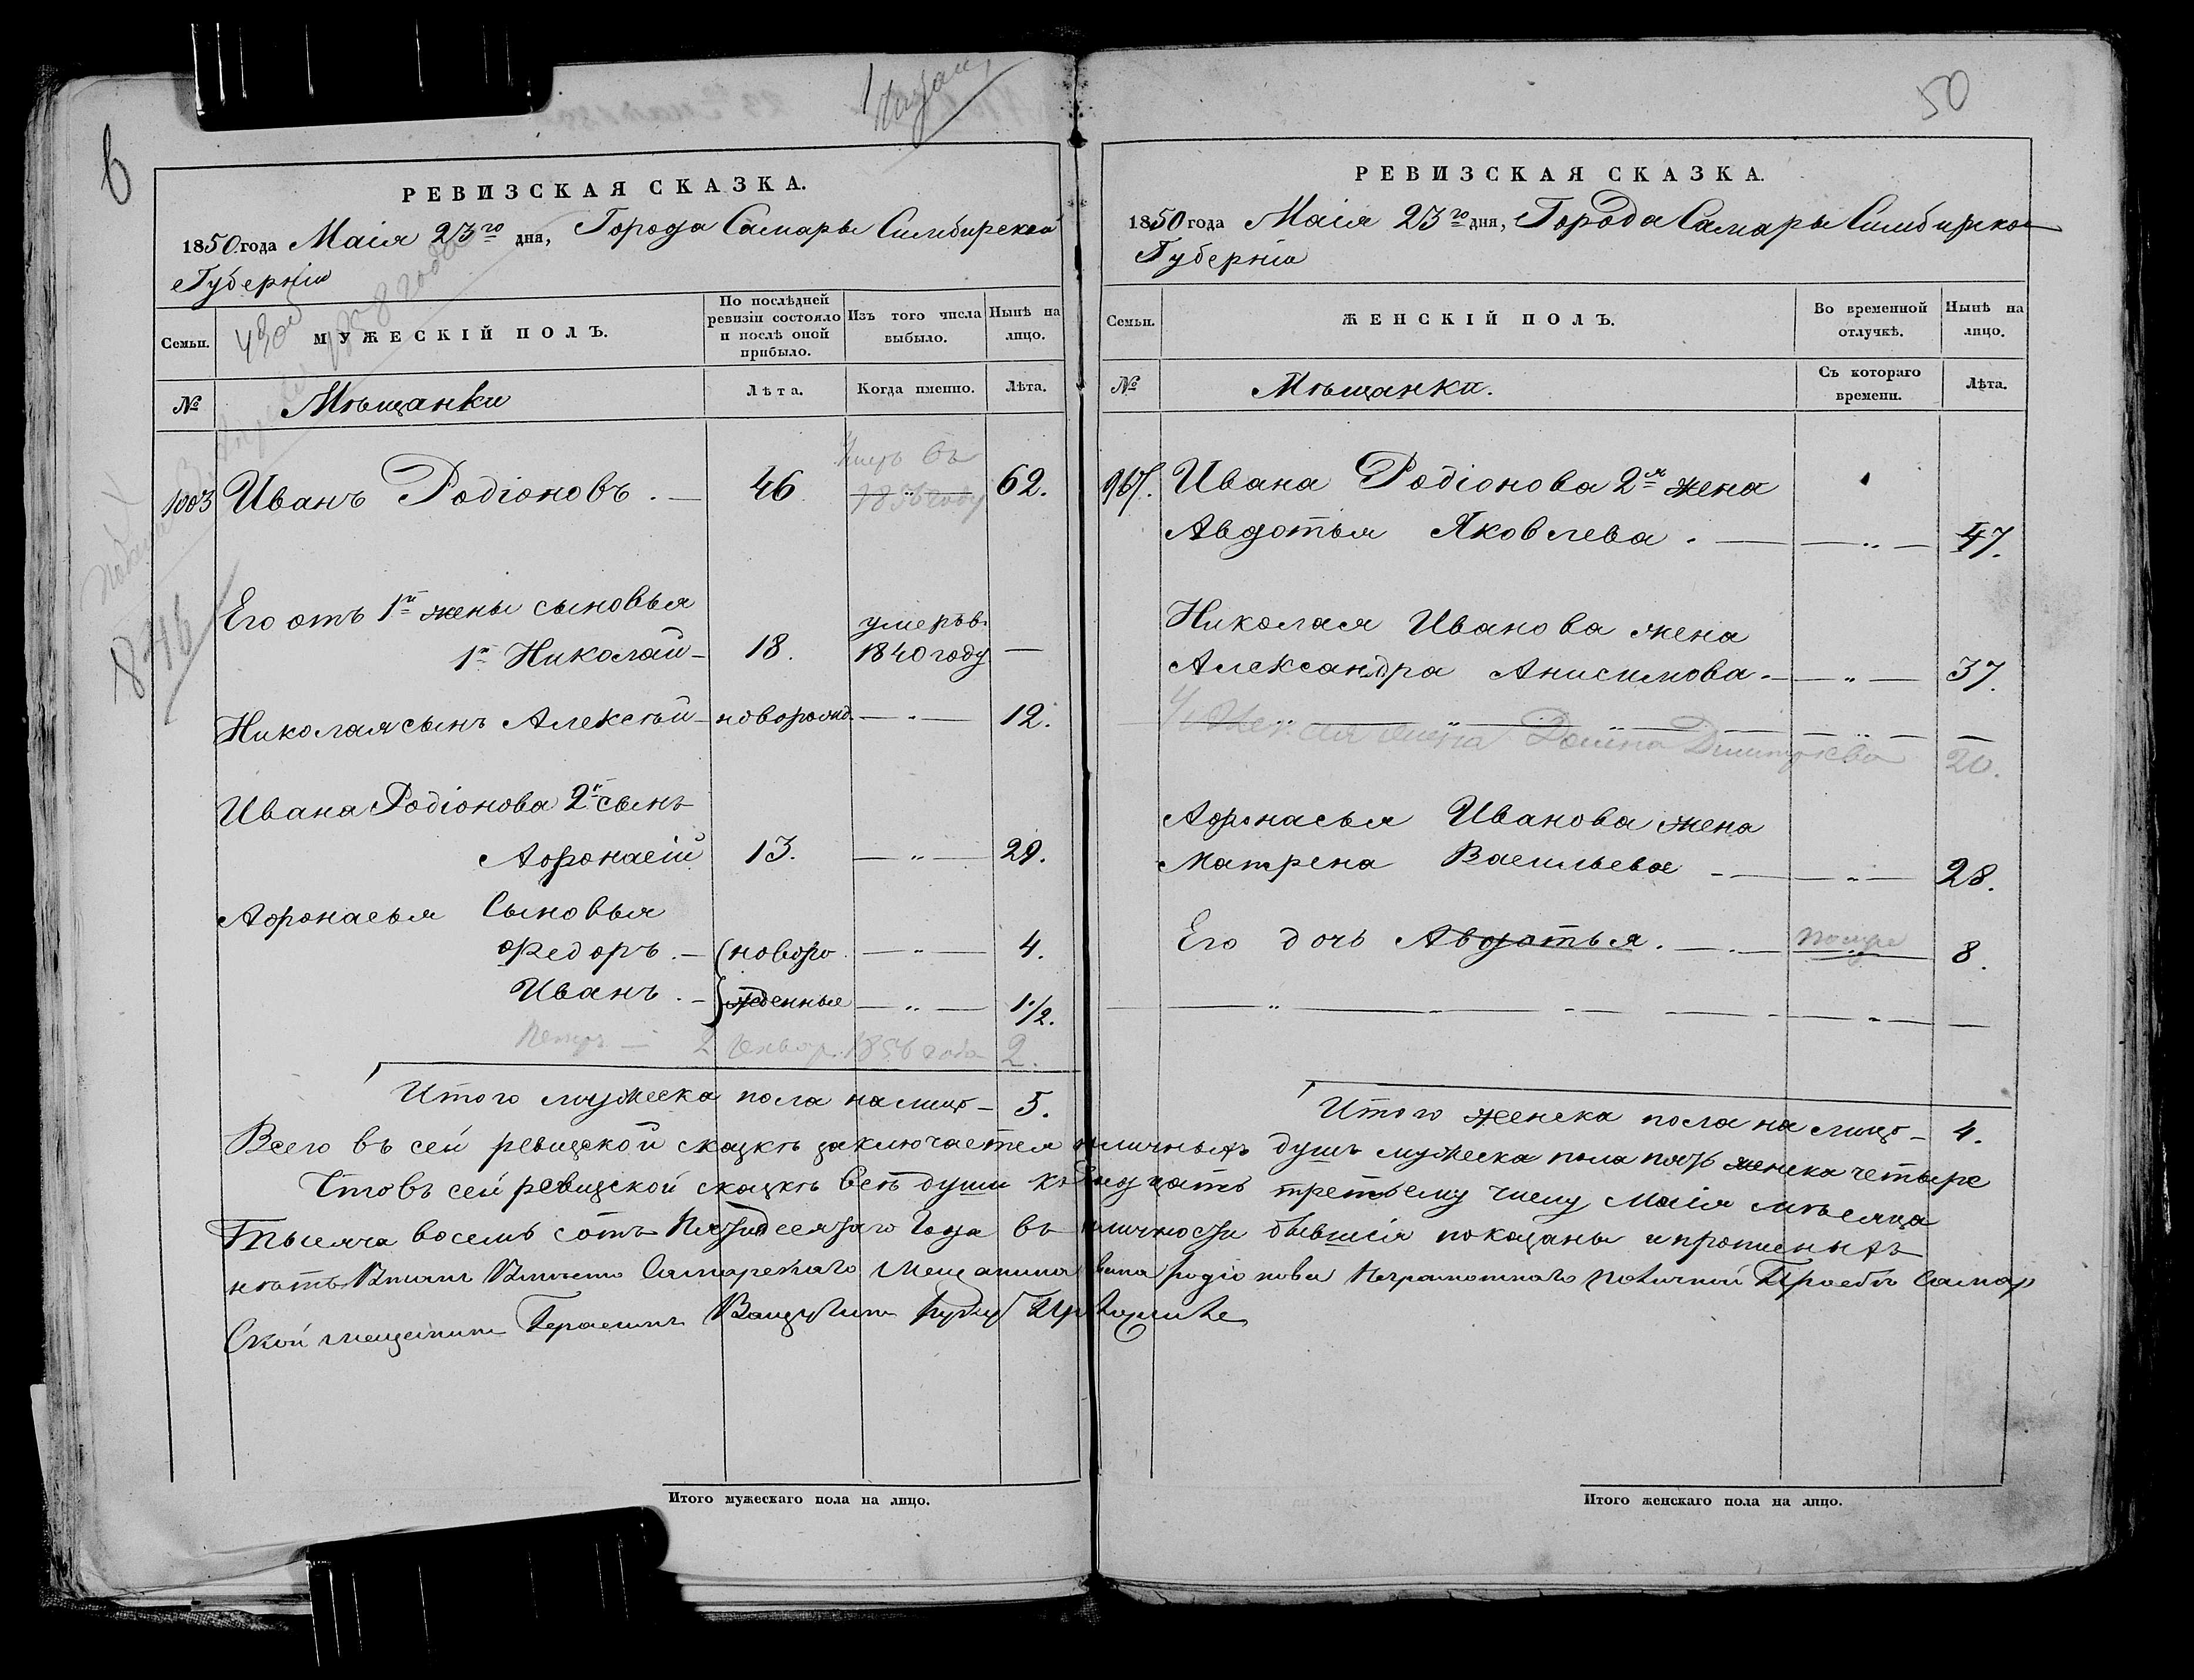 6
50
РЕВИЗСКАЯ СКАЗКА.
1850 года Маія 23го дня, Города Самары Симбирской
Губерніи
Семьи.
МУЖЕСКІЙ ПОЛЪ.
По послѣдней
ревизіи состояло
и послѣ оной
прибыло.
Изъ того числа
выбыло.
Нынѣ на
лицо.
№
Мѣщанки
Лѣта.
Когда именно.
Лѣта.
1003 Иванъ Родіоновъ. 46 въ 1856 году 62.
Его отъ 1й жены сыновья
1й Николай 18. умеръ в 1840 году —
Николая сынъ Алексѣй новорожд. — " — 12.
Ивана Родіонова 2й сынъ
Афонасій 13. — " — 29.
Афонасья Сыновья
Федоръ. — (новоро — " — 4.
Иванъ. — жденные — " — 1 1/2.
Петръ — 2 Генвар. 1856 года 2.
Итого мужеска пола налицо — 5.
РЕВИЗСКАЯ СКАЗКА.
1850 года Маія 23го дня, Города Самары Симбирской
Губерніи
Семьи.
ЖЕНСКІЙ ПОЛЪ.
Во временной
отлучкѣ.
Нынѣ на
лицо.
№
Мѣщанки.
Съ котораго
времени.
Лѣта.
Ивана Родіонова 2я жена
Авдотья Яковлева. — " — 47.
Николая Иванова жена
Александра Анисимова — " — 37.
жена 20.
Афонасья Иванова жена
Матрена Васильева — " — 28.
Его дочь Авдотья. 8.
Итого женска пола на лицо — 4.
Всего въ сей ревизской сказкѣ заключается наличныхъ душъ мужеска пола пять женска четыре
Что въ сей ревизской сказкѣ всѣ души къ двадцать третьему числу Маія мѣсяца
тысяча восемь сотъ Пятидесятаго Года въ наличности бывшія показаны и прописныхъ
нѣтъ Самарскаго Мещанина Ивана родіонова неграмотнаго Самар
Ской мещанинъ Герасимъ руку приложилъ
Итого мужескаго пола на лицо.
Итого женскаго пола на лицо.